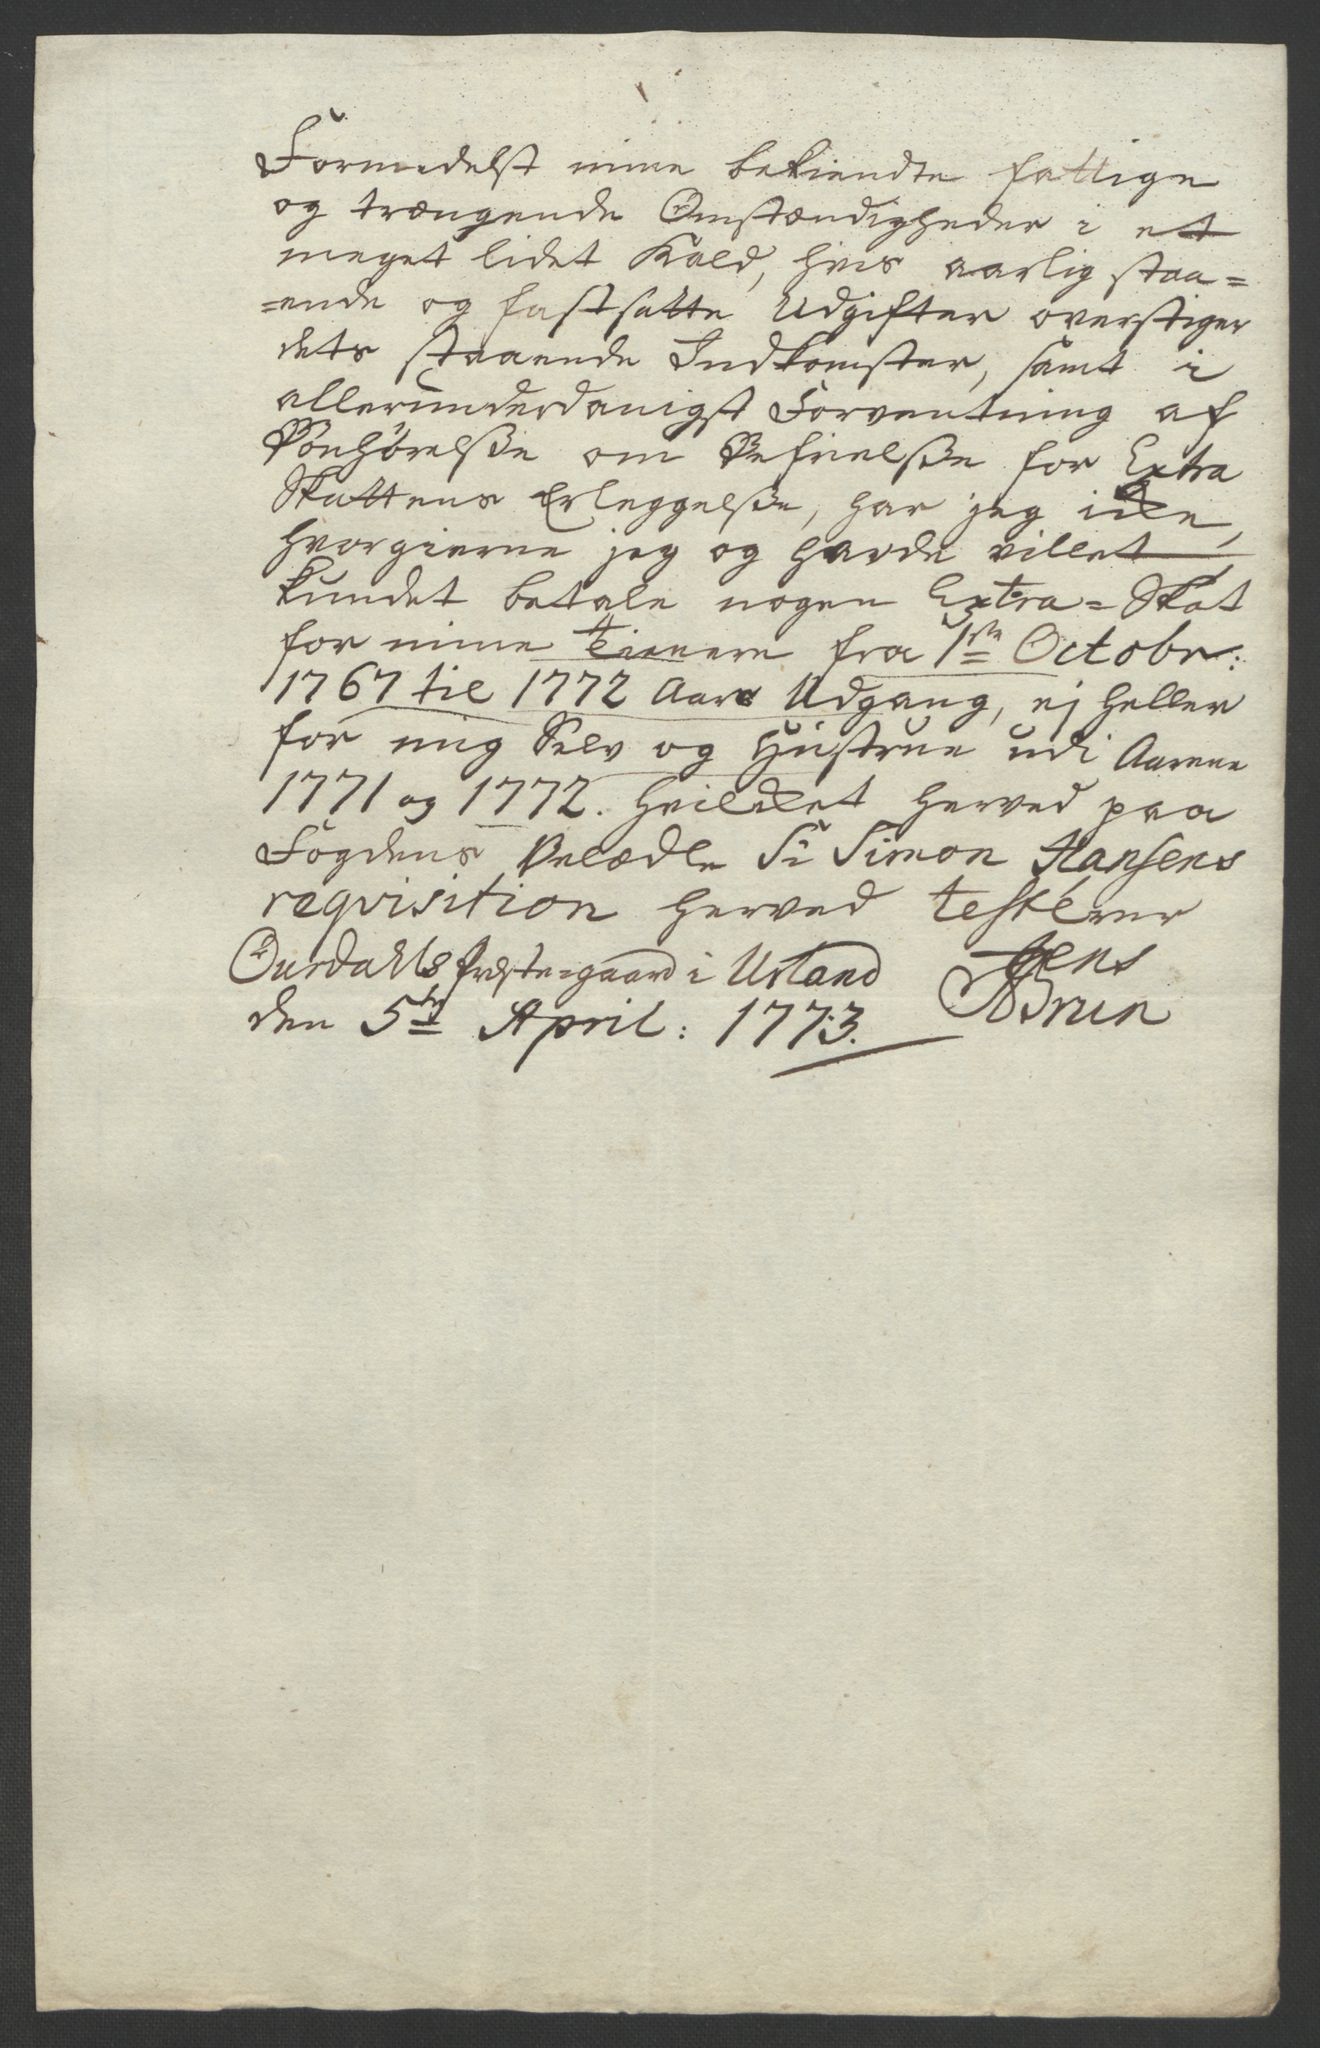 Formedelst mine bekiendte fattige
og trængende Omstændigheder i et
meget lidet Kald, hvis aarlig staa=
=ende og fastsatte Udgifter overstiger
dets staaende Indkomster, samt i
allerunderdanigst Forventning af
Bønhørelsße om Befrielsße for Extra
Skattens Erleggelsße, har jeg icke,
hvorgierne jeg og havde villet,
kundet betale nogen Extra=Skat
for mine Tienere fra 1ste Octobr:
1767 til 1772 Aars Udgang, ej heller
for mig Selv og Hustrue udi Aarene
1771 og 1772. hvilcket herved paa
Fogdens Velædle Sr Simon Hansens
reqvisition herved testerer
Præste=gaard i Urland Jens
den 5te April: 1773. Brun